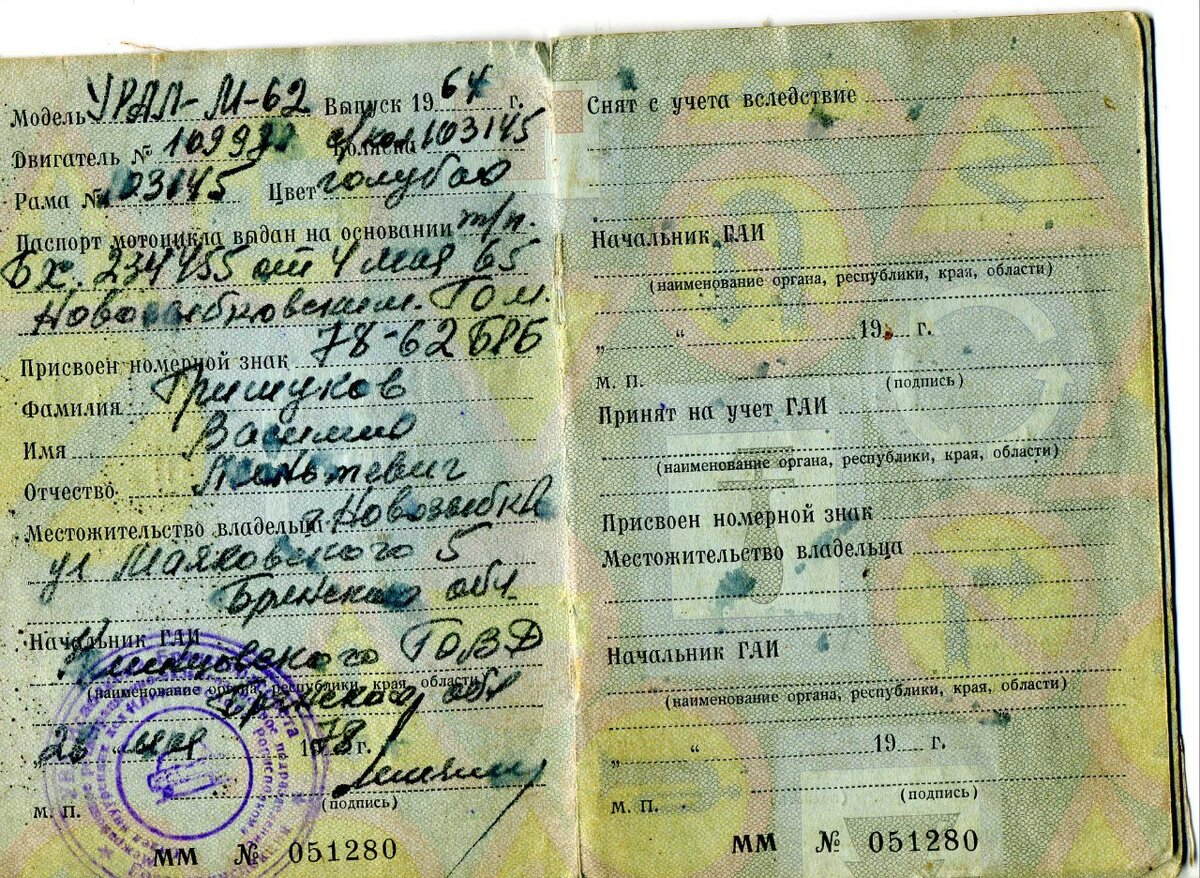 Модель УРАЛ-М-62 Выпуск 1964 г.
Двигатель № 10998 Коляска 103145
Рама № 103145 Цвет голубою
Паспорт мотоцикла выдан на основании т/п.
БХ. 234455 от 4 мая 65
Новозыбковским. ГОМ.
Присвоен номерной знак 78-62 БРБ
Фамилия Гришуков
Имя
Отчество
Местожительство владельца г. Новозыбков
ул Маяковского 5
Брянской обл
Начальник ГАИ
Клинцовского ГОВД
(наименование органа, республики, края, области)
Брянской обл
„25 “ мая 1978 г.
М. П. (подпись)
ММ № 051280
Снят с учета вследствие
Начальник ГАИ
(наименование органа, республики, края, области)
„ “ 19 г.
М. П. (подпись)
Принят на учет ГАИ
(наименование органа, республики, края, области)
Присвоен номерной знак
Местожительство владельца
Начальник ГАИ
(наименование органа, республики, края, области)
„ “ 19 г.
М. П. (подпись)
ММ № 051280